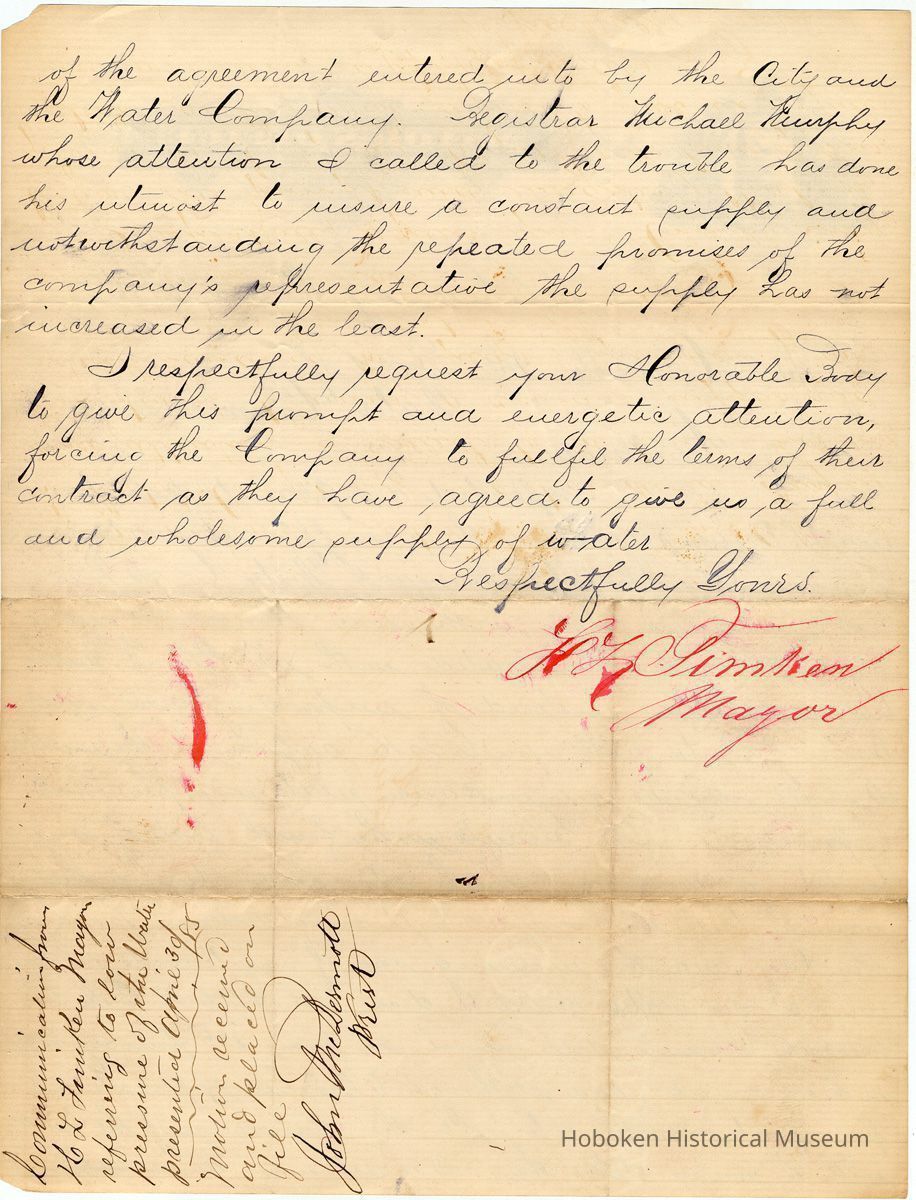 of the agreement entered into by the City and
the Water Company. Registrar Michael Murphy
whose attention I called to the trouble has done
his utmost to insure a constant supply and
notwithstanding the repeated promises of the
company's representative the supply has not
increased in the least.
I respectfully request your Honorable Body
to give this prompt and energetic attention,
forcing the Company to fullfil the terms of their
contract as they have agreed to give us a full
and wholesome supply of water
Respectfully Yours.
H L Timken
Mayor
Communication from
H L Timken Mayor
referring to low
pressure of the Water
presented April 30/
Motion
and placed on
file
John McDermott
Prest
Hoboken Historical Museum